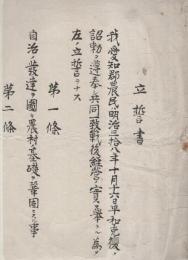 立誓書
我愛知郡農民ハ明治三拾八年十月十六日平和克復ノ
詔勅ヲ遵奉シ共同致シ戦後経営ノ實ヲ擧クル為メ
左ノ立誓ヲナス
第一條
自治ノ發達ヲ圖リ農村ノ基礎ヲ鞏固ニスル事
第二條